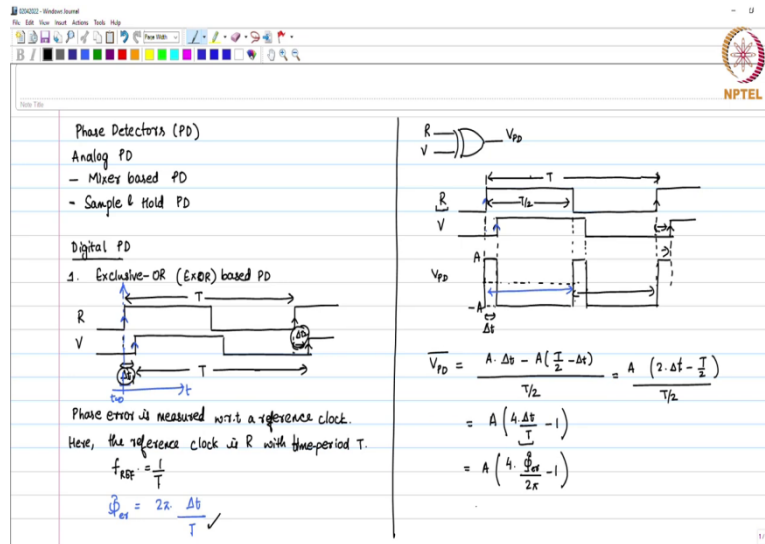 02042022 - Windows Journal
File Edit View Insert Actions Tools Help
Page Width
B I
NPTEL
Note Title
Phase Detectors (PD)
Analog PD
- Mixer based PD
- Sample & Hold PD
Digital PD
1. Exclusive-OR (ExOR) based PD
T
R
V
Δt
Δt
T
t=0
t
Phase error is measured w.r.t a reference clock.
Here, the reference clock is R with time-period T.
f_REF = 1/T
Φ_er = 2π. Δt/T ✓
R
V
V_PD
T
R
T/2
V
A
V_PD
-A
Δt
V_PD = (A. Δt - A(T/2 - Δt)) / (T/2) = A (2.Δt - T/2) / (T/2)
= A (4. Δt/T - 1)
= A (4. Φ_er/2π - 1)
1/1